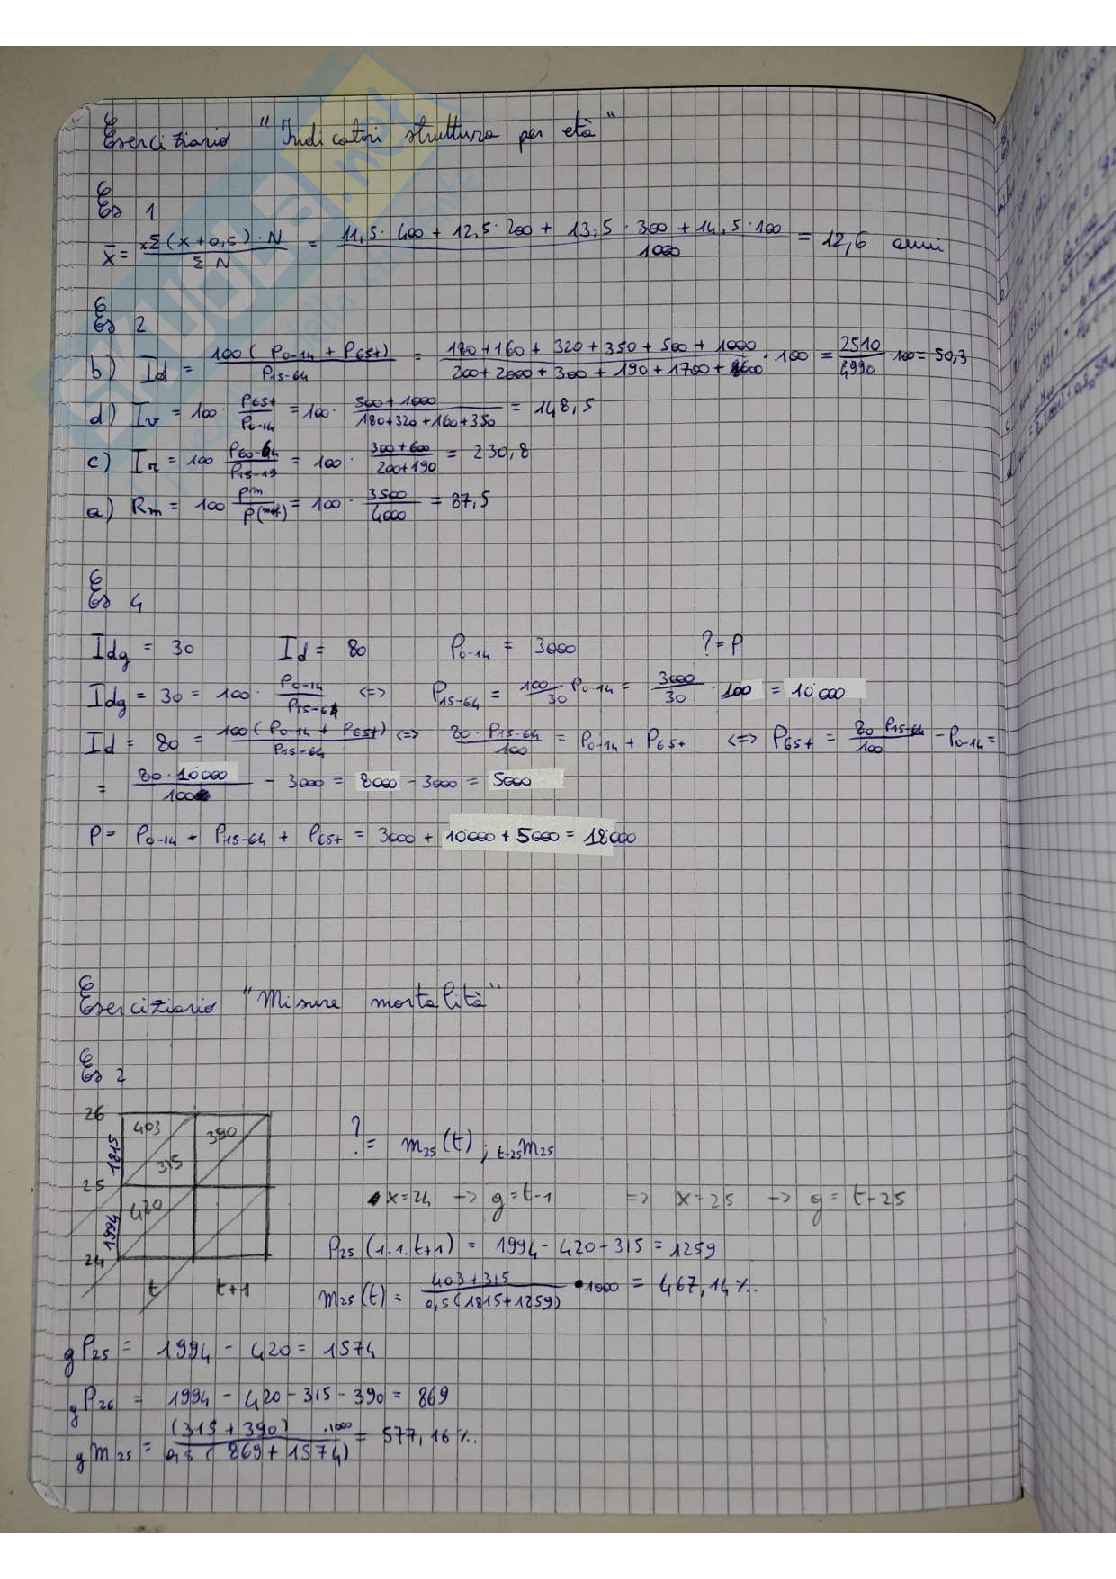 Eserciziario "Indicatori struttura per età"
Es 1
x̄ = xΣ(x+0,5)·N / ΣN = 11,5·400 + 12,5·200 + 13,5·300 + 14,5·100 / 1000 = 12,6 anni
Es 2
b) Id = 100(P0-14 + P65+) / P15-64 = 180+160+320+350+500+1000 / 200+2000+300+190+1700+600 · 100 = 2510 / 4990 100 = 50,3
d) Iv = 100· P65+ / P0-14 = 100· 500+1000 / 180+320+160+350 = 148,5
c) Ir = 100 P60-64 / P15-19 = 100· 300+600 / 200+190 = 230,8
a) Rm = 100 Pm / P(m+f) = 100· 3500 / 4000 = 87,5
Es 4
Idg = 30 Id = 80 P0-14 = 3000 ? = P
Idg = 30 = 100· P0-14 / P15-64 <=> P15-64 = 100 / 30 · P0-14 = 3000 / 30 · 100 = 10000
Id = 80 = 100(P0-14 + P65+) / P15-64 <=> 80·P15-64 / 100 = P0-14 + P65+ <=> P65+ = 80 P15-64 / 100 - P0-14 =
= 80·10000 / 100 - 3000 = 8000 - 3000 = 5000
P = P0-14 + P15-64 + P65+ = 3000 + 10000 + 5000 = 18000
Eserciziario "Misure mortalità"
Es 2
26 403 390
1815 315
25 420
1994
24 t t+1
? = m25(t) ; t-25m25
x=24 -> g=t-1 => x=25 -> g=t-25
P25(1.1.t+1) = 1994 - 420 - 315 = 1259
m25(t) = 403+315 / 0,5(1815+1259) ·1000 = 467,14 ‰
gP25 = 1994 - 420 = 1574
gP26 = 1994 - 420 - 315 - 390 = 869
gm25 = (315 + 390) / 0,5(869+1574) ·1000 = 577,16 ‰